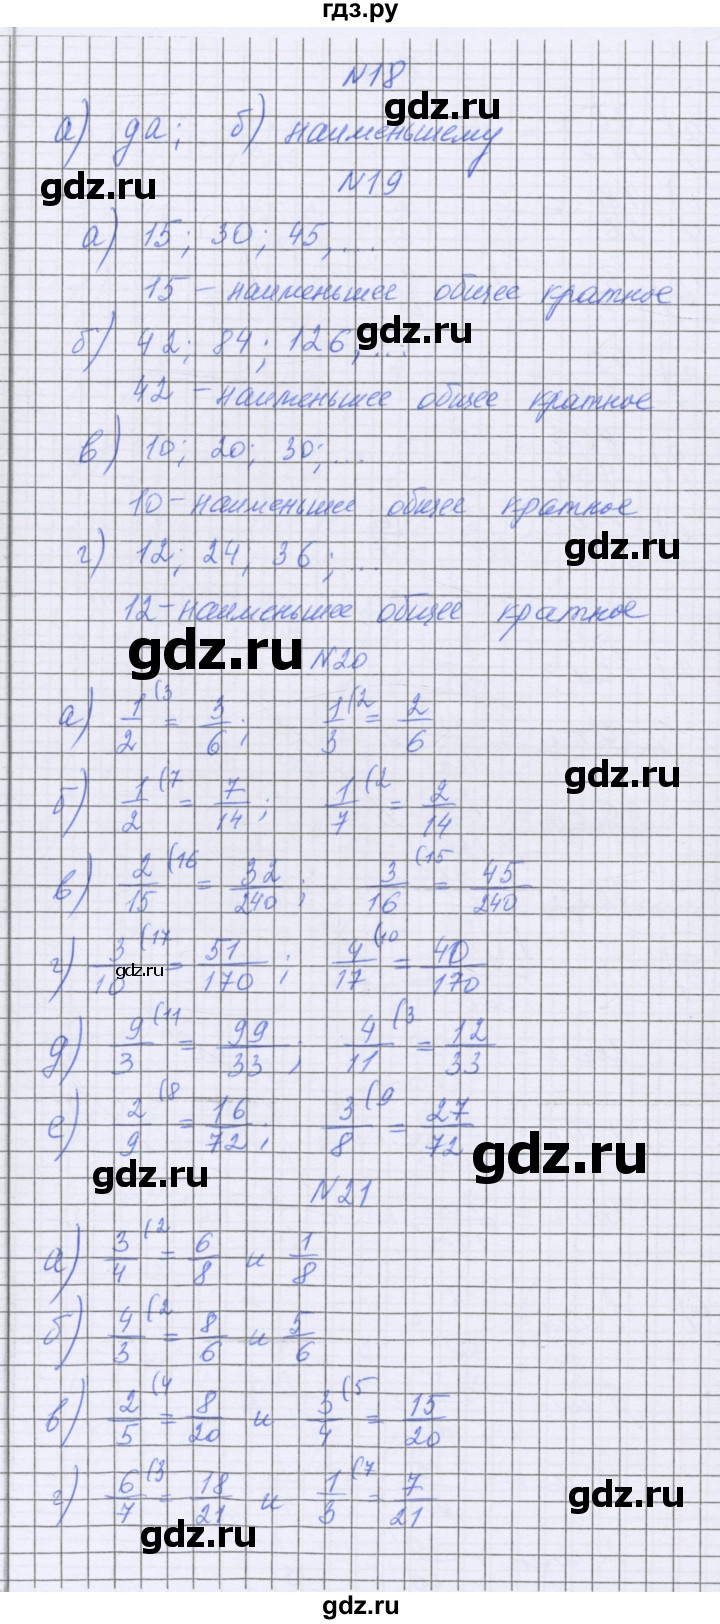 гдз.ру
N18
gdz.ru
а) да; б) наименьшему
gdz.ru
N19
а) 15; 30; 45, ...
15 – наименьшее общее кратное
gdz.ru
б) 42; 84; 126, ...
42 – наименьшее общее кратное
в) 10; 20; 30; ...
10 – наименьшее общее кратное
gdz.ru
г) 12; 24, 36; ...
12 – наименьшее общее кратное
gdz.ru
N20
а) 1/2 (3 = 3/6; 1/3 (2 = 2/6
gdz.ru
б) 1/2 (7 = 7/14; 1/7 (2 = 2/14
в) 2/15 (16 = 32/240; 3/16 (15 = 45/240
г) 3/10 (17 = 51/170; 4/17 (10 = 40/170
gdz.ru
д) 9/3 (11 = 99/33; 4/11 (3 = 12/33
е) 2/9 (8 = 16/72; 3/8 (9 = 27/72
gdz.ru
gdz.ru
N21
а) 3/4 (2 = 6/8 и 1/8
б) 4/3 (2 = 8/6 и 5/6
gdz.ru
в) 2/5 (4 = 8/20 и 3/4 (5 = 15/20
г) 6/7 (3 = 18/21 и 1/3 (7 = 7/21
gdz.ru
gdz.ru
gdz.ru